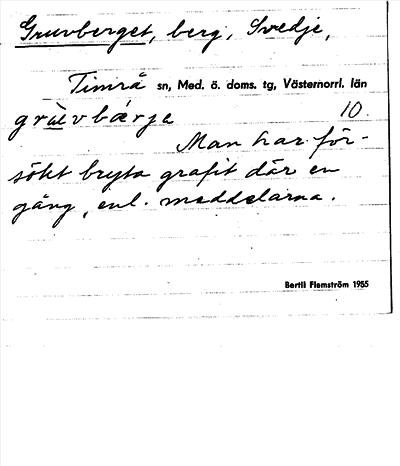 Gruvberget, berg, Svedje,
Timrå sn, Med. ö. doms. tg, Västernorrl. län
grùvbǽrje 10.
Man har för-
sökt bryta grafit där en
gång, enl. meddelarna.
Bertil Flemström 1955